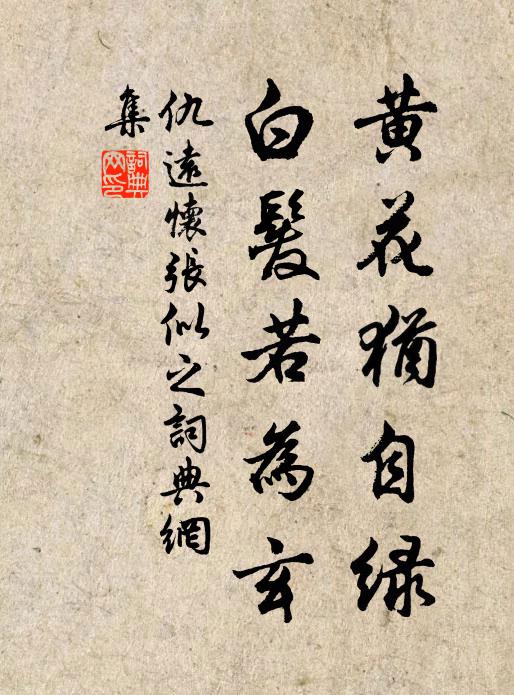 黄花猶自緑
白髮若為玄
仇遠懷張似之詞典網
集
詞典
网印